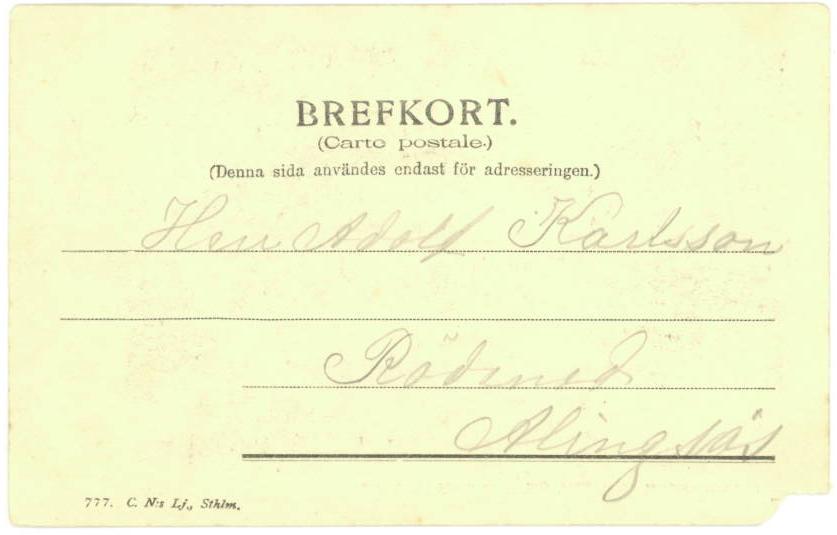 BREFKORT.
(Carte postale.)
(Denna sida användes endast för adresseringen.)
Herr Adolf Karlsson
Rödened
Alingsås
777. C. N:s Lj., Sthlm.